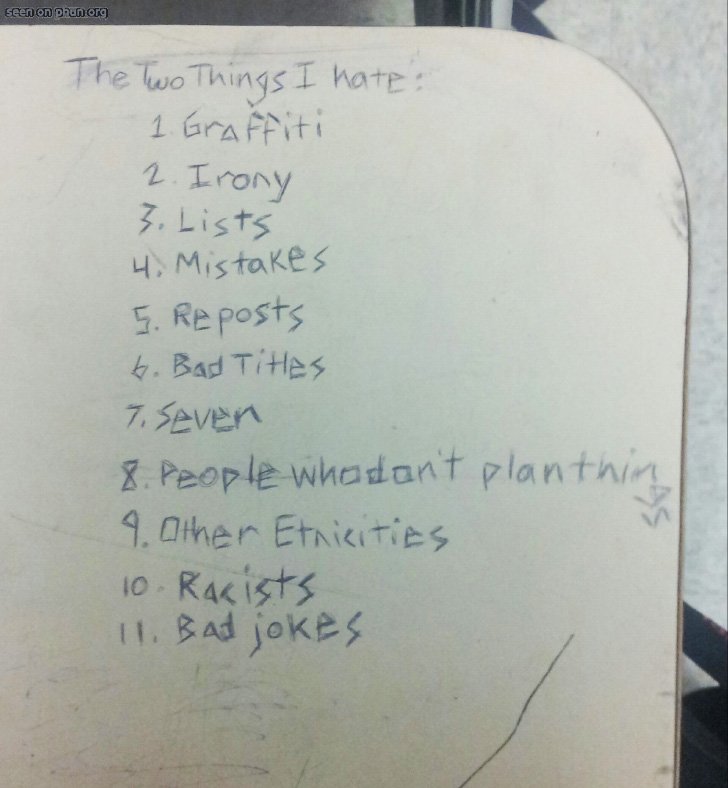 seen on phun.org
The Two Things I hate:
1. Graffiti
2. Irony
3. Lists
4. Mistakes
5. Reposts
6. Bad Titles
7. Seven
8. People who don't plan things
9. Other Etnicities
10. Racists
11. Bad jokes